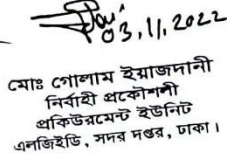 03.11.2022
মোঃ গোলাম ইয়াজদানী
নির্বাহী প্রকৌশলী
প্রকিউরমেন্ট ইউনিট
এলজিইডি, সদর দপ্তর, ঢাকা।